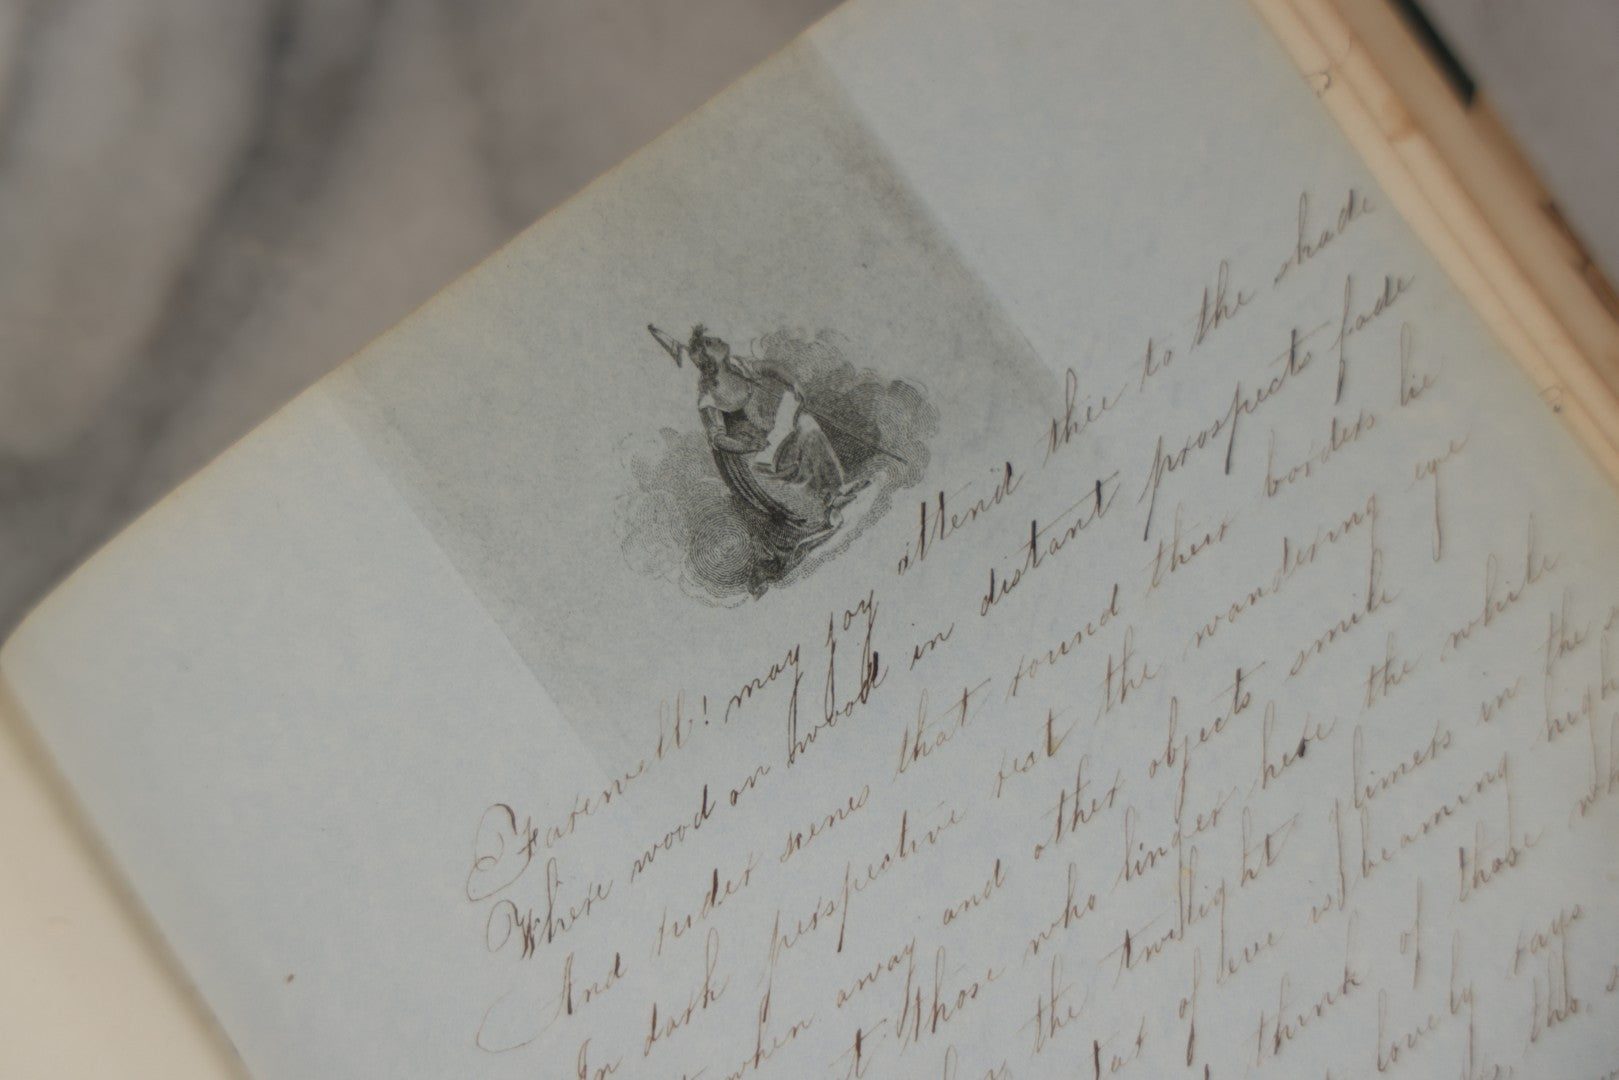 Farewell! may joy attend thee to the shade
Where wood on wood in distant prospects fade
And ruder scenes that round their borders lie
In dark perspective rest the wandering eye
when away and other objects smile
t those who linger here the while
the twilight glimers in the
tar of eve is beaming high
think of those wh
lovely rays
tho.